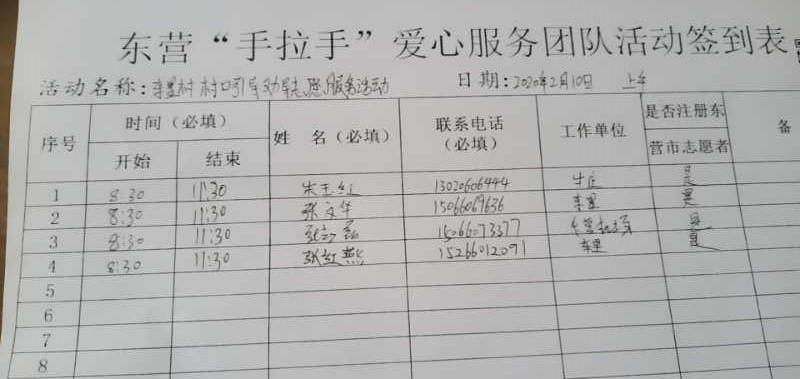 东营“手拉手”爱心服务团队活动签到表
活动名称: 村村口引导劝导志愿服务活动 日期: 2020年2月10日 上午
序号 时间（必填） 姓 名（必填） 联系电话（必填） 工作单位 是否注册东营市志愿者 备
开始 结束
1 8:30 11:30 朱玉红 13020606444 牛庄 是
2 8:30 11:30 张文华 15066069636 是
3 8:30 11:30 15066073377 是
4 8:30 11:30 张红燕 15266012091 是
5
6
7
8